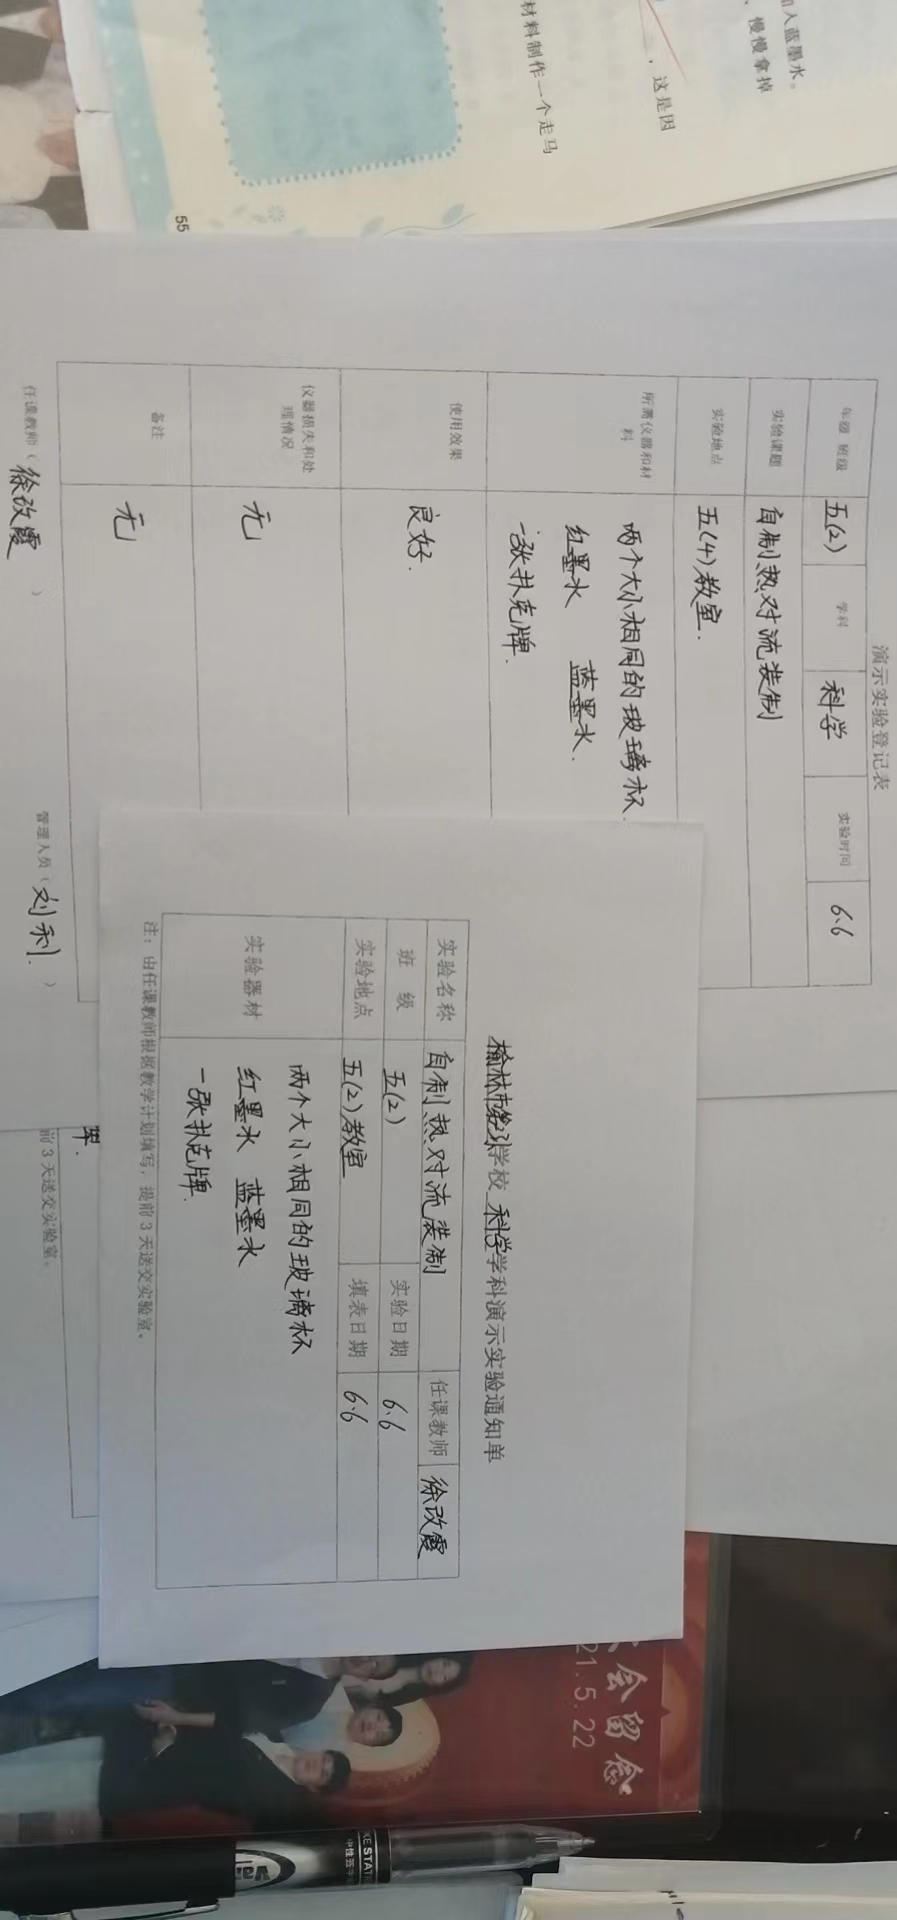 加入蓝墨水。
，慢慢拿掉
，这是因
材料制作一个走马
55
演示实验登记表
年级 班级 五(2) 学科 科学 实验时间 6.6
实验课题 自制热对流装制
实验地点 五(4)教室.
所需仪器和材料 两个大小相同的玻璃杯
红墨水 蓝墨水.
一张扑克牌.
使用效果 良好.
仪器损失和处理情况 无
备注 无
任课教师（徐改霞） 管理人员（刘利.）
学校 科学学科演示实验通知单
实验名称 自制热对流装制 任课教师 徐改霞
班 级 五(2) 实验日期 6.6
实验地点 五(2)教室 填表日期 6.6
实验器材 两个大小相同的玻璃杯
红墨水 蓝墨水
一张扑克牌.
注：由任课教师根据教学计划填写，提前3天送交实验室。
前3天送交实验室。
会留念
21.5.22
中性签字